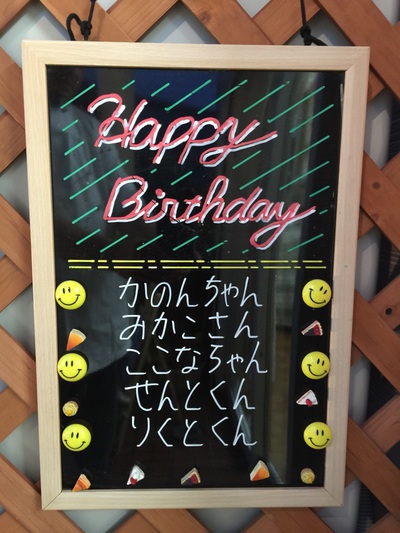 Happy
Birthday
かのんちゃん
みかこさん
ここなちゃん
せんとくん
りくとくん